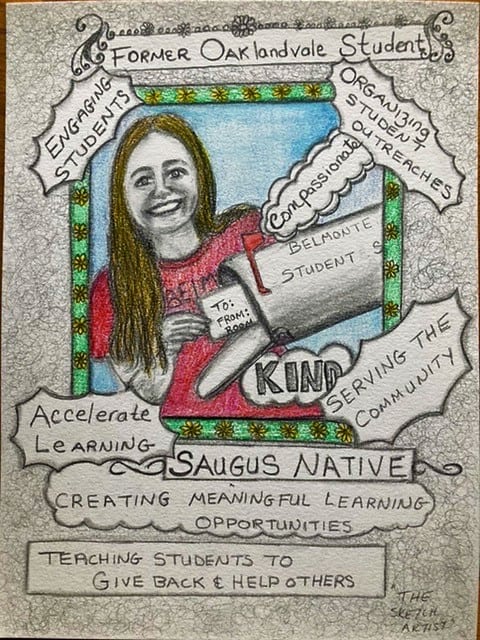 FORMER OAKLANDVALE STUDENT
ENGAGING
STUDENTS
ORGANIZING
STUDENT
OUTREACHES
COMPASSIONATE
BELMONTE
STUDENT S
BELM
TO:
FROM:
ROOM
KIND
SERVING THE
COMMUNITY
Accelerate
LEARNING
SAUGUS NATIVE
CREATING MEANINGFUL LEARNING
OPPORTUNITIES
TEACHING STUDENTS TO
GIVE BACK & HELP OTHERS
"THE
SKETCH
ARTIST"